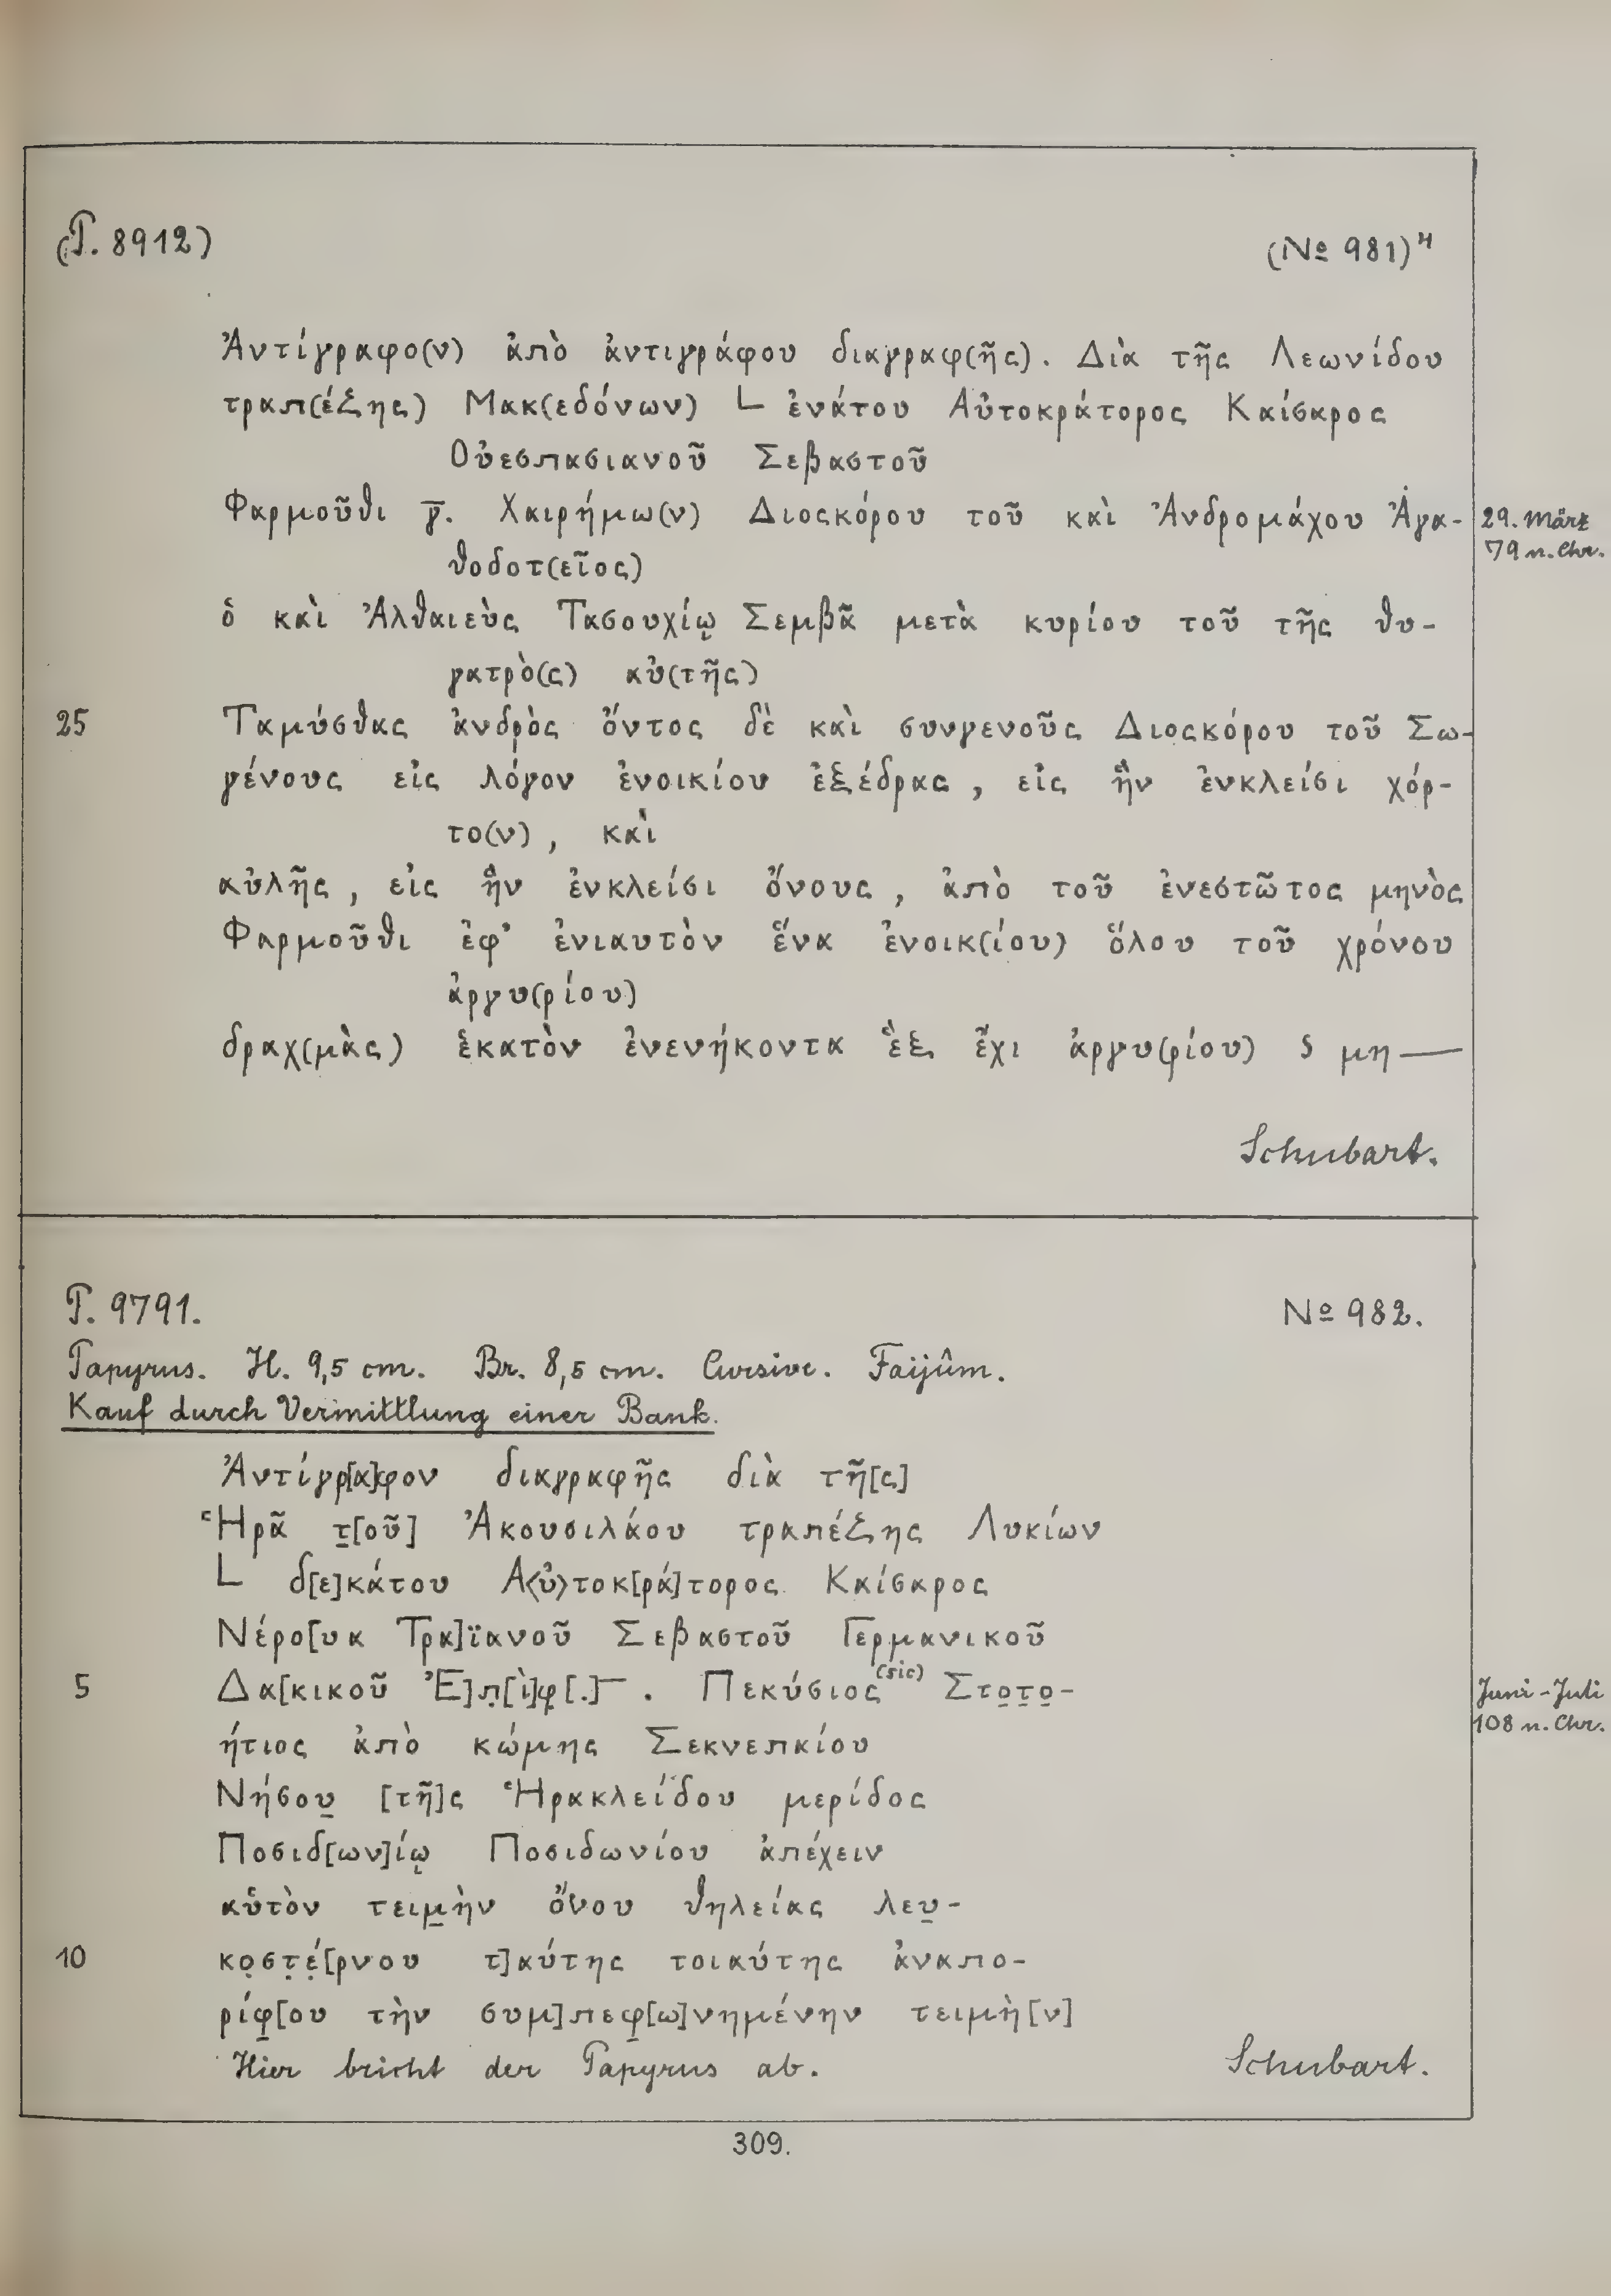 (P. 8912)
(№ 981)II
Ἀντίγραφο(ν) ἀπὸ ἀντιγράφου διαγραφ(ῆς). Διὰ τῆς Λεωνίδου
τραπ(έζης) Μακ(εδόνων) L ἐνάτου Αὐτοκράτορος Καίσαρος
Οὐεσπασιανοῦ Σεβαστοῦ
Φαρμοῦθι γ̅. Χαιρήμω(ν) Διοσκόρου τοῦ καὶ Ἀνδρομάχου Ἀγα-
29. März
79 n. Chr.
θοδοτ(εῖος)
ὁ καὶ Ἀλθαιεὺς Τασουχίῳ Σεμβᾶ μετὰ κυρίου τοῦ τῆς θυ-
γατρὸ(ς) αὐ(τῆς)
25 Ταμύσθας ἀνδρὸς ὄντος δὲ καὶ συνγενοῦς Διοσκόρου τοῦ Σω-
γένους εἰς λόγον ἐνοικίου ἐξέδρας, εἰς ἣν ἐνκλείσι χόρ-
το(ν), καὶ
αὐλῆς, εἰς ἣν ἐνκλείσι ὄνους, ἀπὸ τοῦ ἐνεστῶτος μηνὸς
Φαρμοῦθι ἐφ' ἐνιαυτὸν ἕνα ἐνοικ(ίου) ὅλου τοῦ χρόνου
ἀργυ(ρίου)
δραχ(μὰς) ἑκατὸν ἐνενήκοντα ἓξ ἔχι ἀργυ(ρίου) S μη—
Schubart.
P. 9791.
№ 982.
Papyrus. H. 9,5 cm. Br. 8,5 cm. Cursive. Faijûm.
Kauf durch Vermittlung einer Bank.
Ἀντίγρ[α]φον διαγραφῆς διὰ τῆ[ς]
Ἡρᾶ τ̣[οῦ] Ἀκουσιλάου τραπέζης Λυκίων
L δ[ε]κάτου Α⟨ὐ⟩τοκ[ρά]τορος Καίσαρος
Νέρο[υα Τρα]ϊανοῦ Σεβαστοῦ Γερμανικοῦ
5 Δα[κικοῦ Ἐ]π̣[ὶ]φ̣[.]‾. Πεκύσιος (sic) Στο̣τ̣ο̣-
Juni-Juli
108 n. Chr.
ήτιος ἀπὸ κώμης Σεκνεπαίου
Νήσου̣ [τῆ]ς Ἡρακλείδου μερίδος
Ποσιδ[ων]ίῳ Ποσιδωνίου ἀπέχειν
αὑτὸν τειμ̣ὴν ὄνου θηλείας λευ̣-
10 κο̣στ̣έ̣[ρνου τ]αύτης τοιαύτης ἀναπο-
ρίφ̣[ου τὴν συμ]πεφ̣[ω]νημένην τειμὴ[ν]
Hier bricht der Papyrus ab.
Schubart.
309.